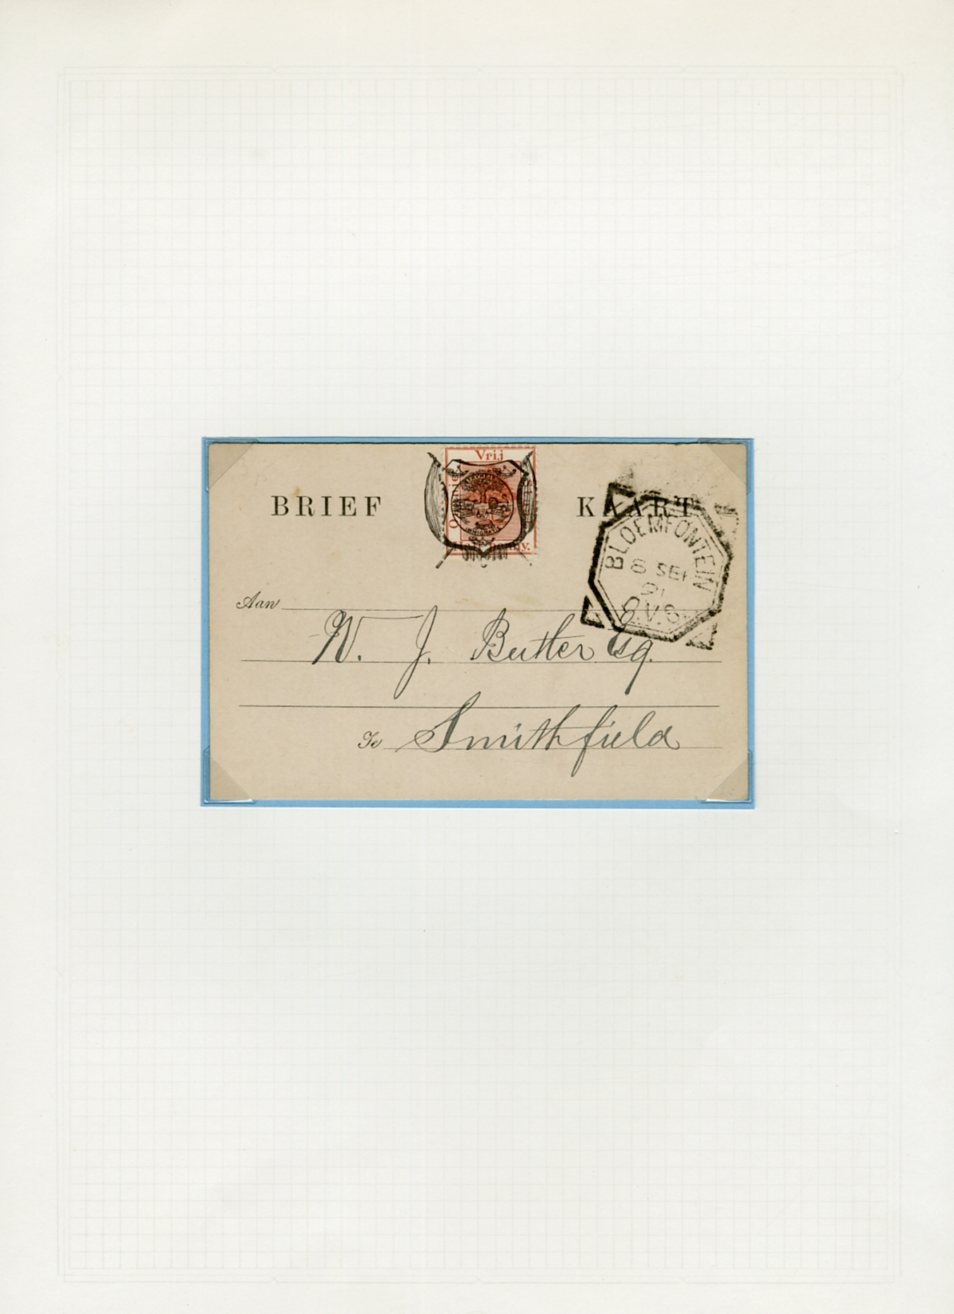 Vrij
BRIEF KAART
BLOEMFONTEIN
8 SEP
91
O.V.S.
Aan
W. J. Butler Esq.
To Smithfield